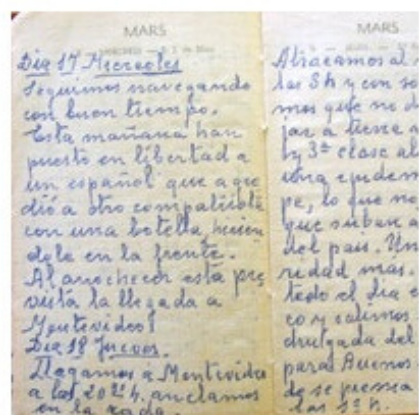 MARS
Dia 17 Miercoles
Seguimos navegando
con buen tiempo.
Esta mañana han
puesto en libertad a
un español que agre
dió a otro compatriota
con una botella, hirien
dole en la frente.
Al anochecer está pre
vista la llegada a
Montevideo!
Dia 18 Jueves.
Llegamos a Montevideo
a las 20 h. anclamos
en la rada.
MARS
Atracamos al
las 8 h y con so
mos que no
jar a tierra
y 3ª clase al
una epidem
pe, lo que no
que suban a
del pais. Un
ridad mas
todo el dia
co y salimos
drugada del
para Buenos
de se piensa
las 12 h.